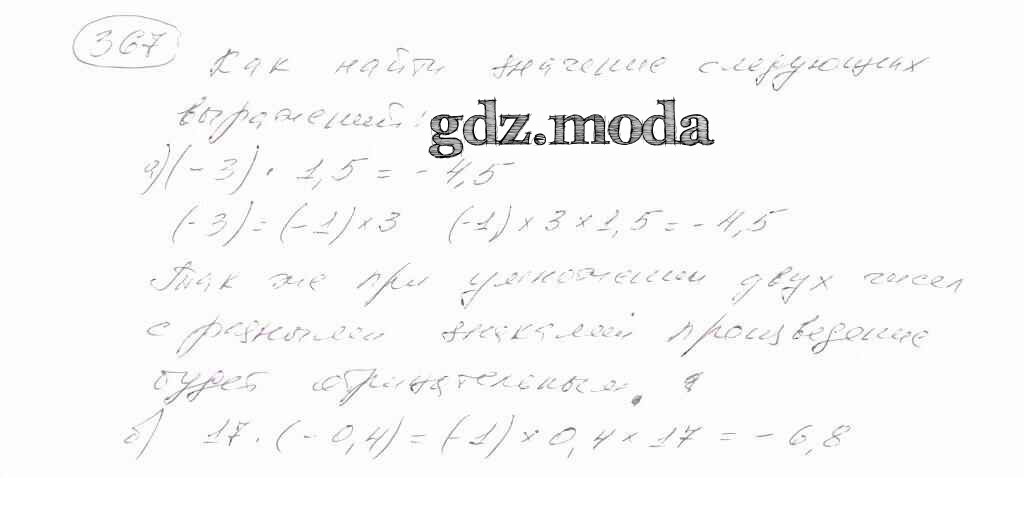 367
Как найти значение следующих
выражений:
gdz.moda
а) (-3) · 1,5 = -4,5
(-3) = (-1) × 3 (-1) × 3 × 1,5 = -4,5
Так же при умножении двух чисел
с разными знаками произведение
будет отрицательным.
б) 17 · (-0,4) = (-1) × 0,4 × 17 = -6,8